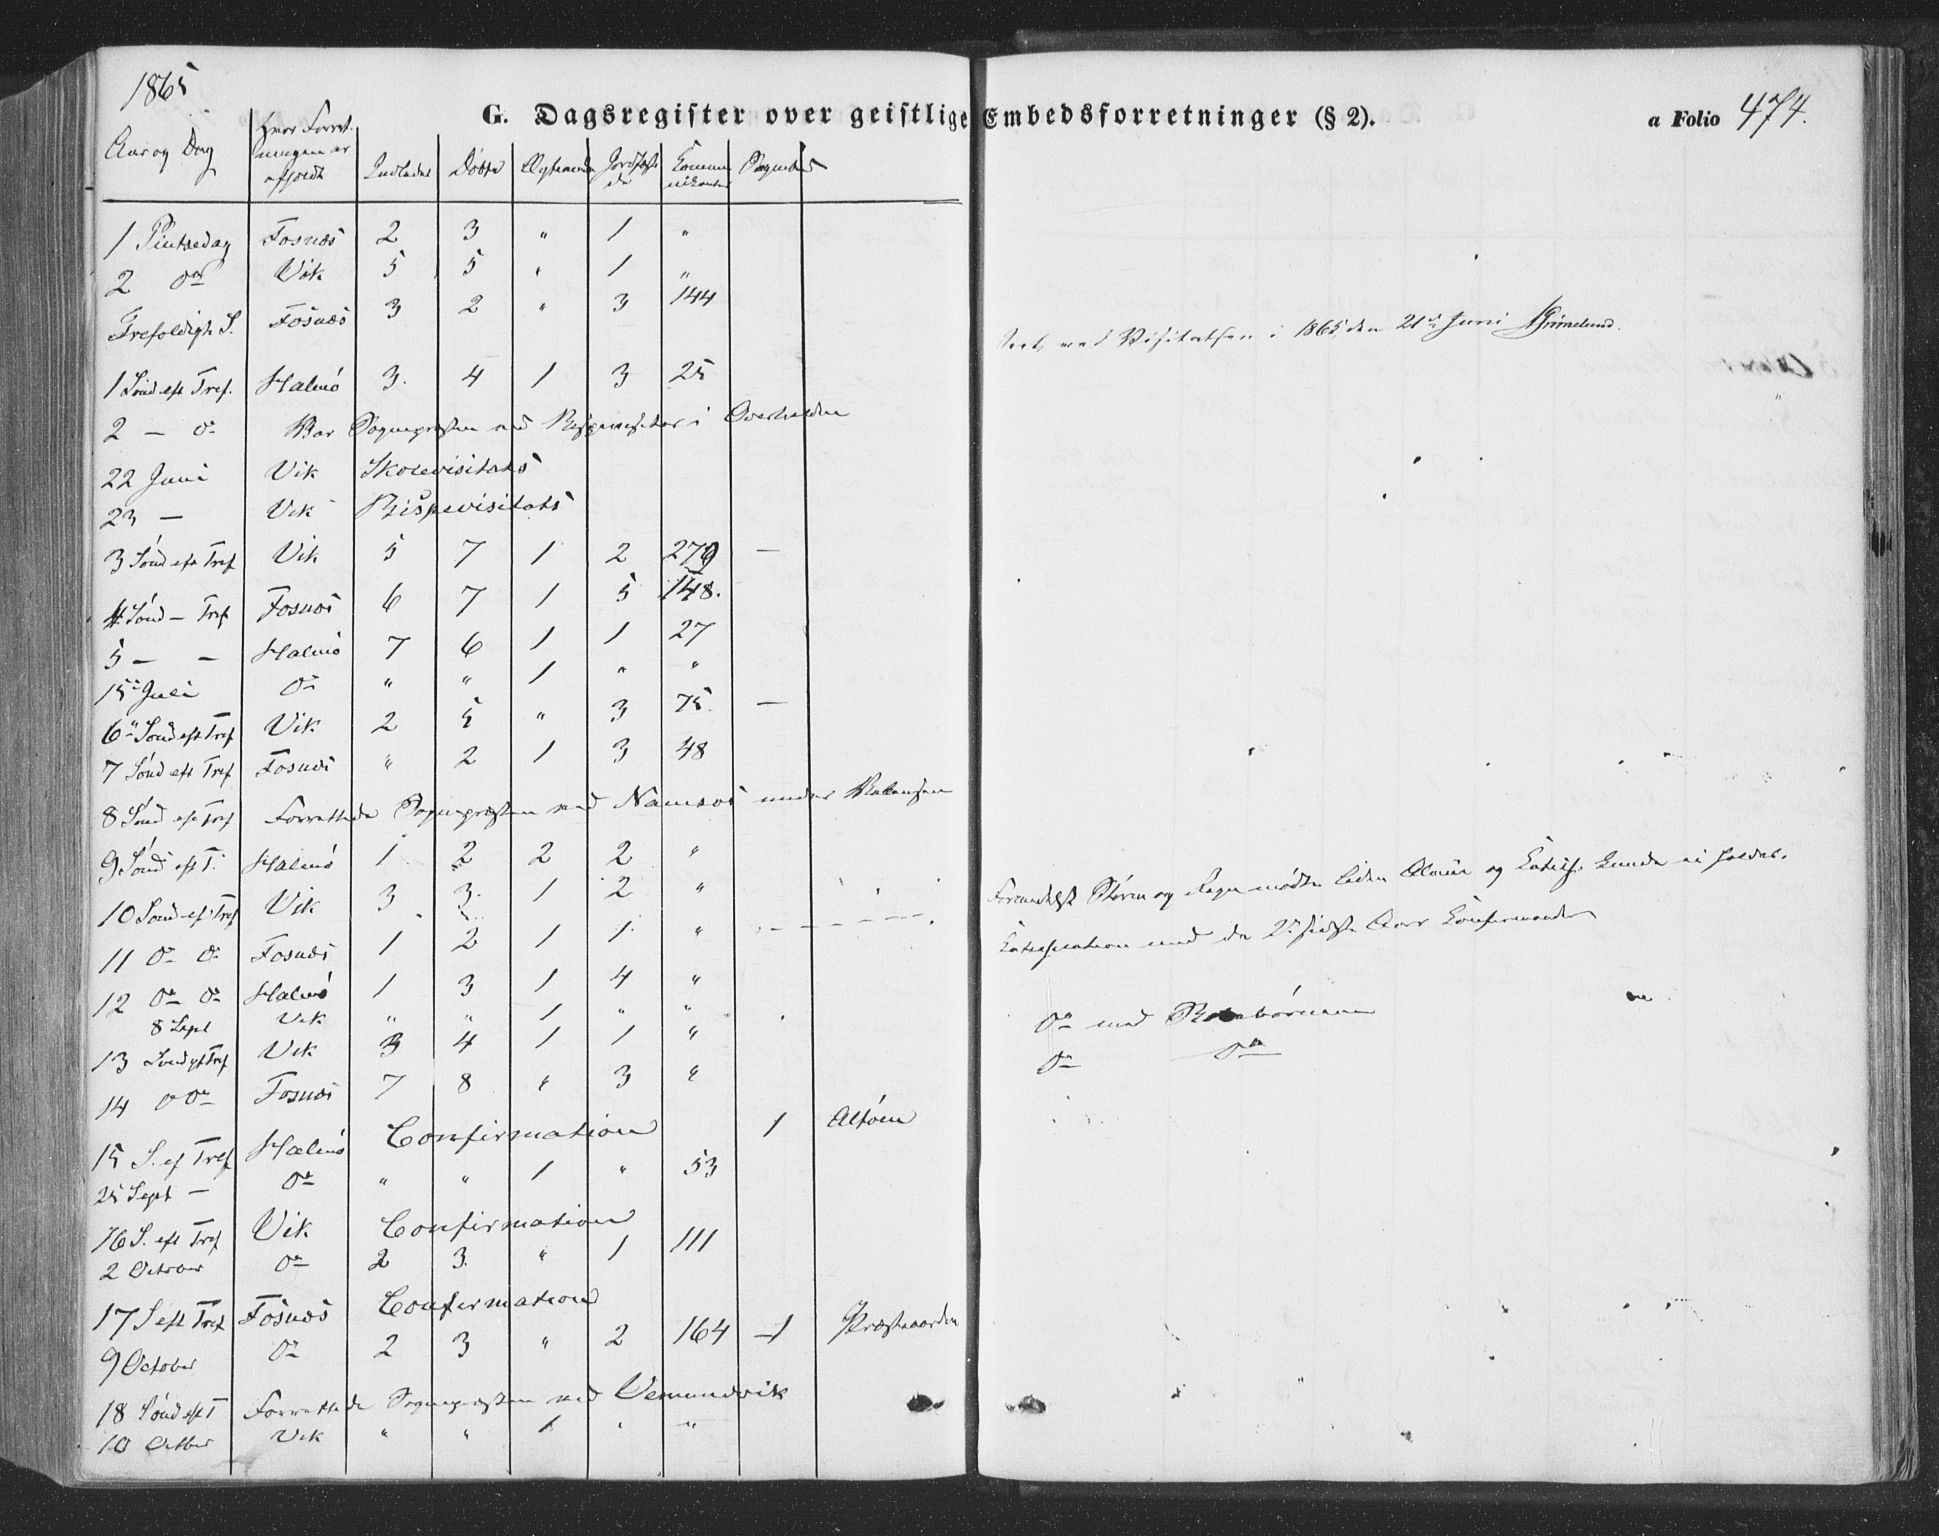 1865
G. Dagsregister over geistlige Embedsforretninger (§ 2). a Folio 474.
Aar og Dag | Hvor Forretningen er afholdt | Indledede | Døbte | Ægteviede | Jordfæstede | Kommunikanter
1 Pintsedag | Fosnæs | 2 | 3 | " | 1 | "
2 do | Vik | 5 | 5 | " | 1 | "
Trefoldigh S. | Fosnæs | 3 | 2 | " | 3 | 144
Seet ved Visitatsen i 1865, den 21de Juni AGrimelund.
1 Sønd eft Tref. | Halmø | 3. | 4 | 1 | 3 | 25
2 — do | Var Sognepresten ved Bispevisitas i Overhalden
22 Juni | Vik | Skolevisitats
23 — | Vik | Bispevisitats
3 Sønd eft Tref | Vik | 5 | 7 | 1 | 2 | 279 | —
4 Sønd — Tref | Fosnæs | 6 | 7 | 1 | 5 | 148.
5 — — | Halmø | 7 | 6 | 1 | 1 | 27
15 Juli | do | " | " | 1 | " | "
6 Sønd eft Tref | Vik | 2 | 5 | " | 3 | 75. | —
7 Sønd eft Tref | Fosnæs | " | 2 | 1 | 3 | 48
8 Sønd eft Tref | Forrettede Sognepresten ved Namsos under Vakansen
9 Sønd eft T. | Halmø | 1 | 2 | 2 | 2 | "
10 Sønd eft Tref | Vik | 3 | 3. | 1 | 2 | "
11 do do | Fosnæs | 1 | 2 | 1 | 1. | "
med de 2 sidste Aars Konfirmander
12 do do | Halmø | 1 | 3 | 1 | 4 | "
8 Sept | Vik | " | " | 1 | " | "
do med
13 Sønd eft Tref | Vik | 3 | 4 | 1 | 1 | "
do do
14 do do | Fosnæs | 7 | 8 | " | 3 | "
15 S. ef Tref | Halmø | Confirmation | 1
25 Sept — | do | " | " | 1 | " | 53
16 S. eft Tref | Vik | Confirmation
2 October | do | 2 | 3. | " | 1 | 111
17 S eft Tref | Fosnæs | Confirmation
9 October | do | 2 | 3 | " | 2 | 164 | —1 | Præstegaarden
18 Sønd eft T | Forrettede Sognepresten ved Vemundvik
10 Octber | Vik | " | " | 1 | " | "